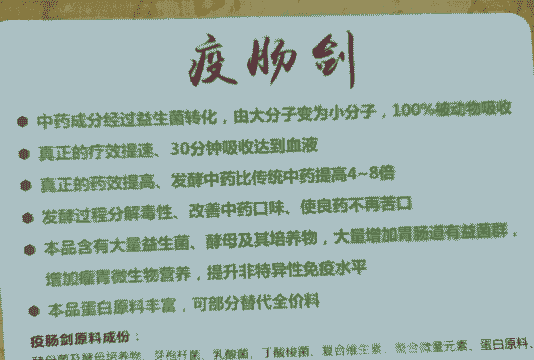 疫肠剑
中药成分经过益生菌转化，由大分子变为小分子，100%被动物吸收
真正的疗效提速、30分钟吸收达到血液
真正的药效提高、发酵中药比传统中药提高4~8倍
发酵过程分解毒性、改善中药口味、使良药不再苦口
本品含有大量益生菌、酵母及其培养物，大量增加胃肠道有益菌群，
增加瘤胃微生物营养，提升非特异性免疫水平
本品蛋白原料丰富，可部分替代全价料
疫肠剑原料成份：
酵母菌及酵母培养物、芽孢杆菌、乳酸菌、丁酸梭菌、复合维生素、螯合微量元素、蛋白原料、